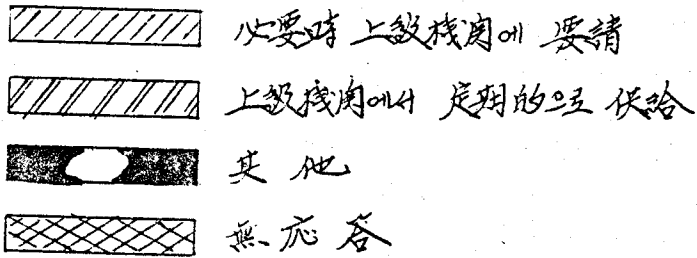 必要時 上級機関에 要請
上級機関에서 定期的으로 供給
其他
無応答